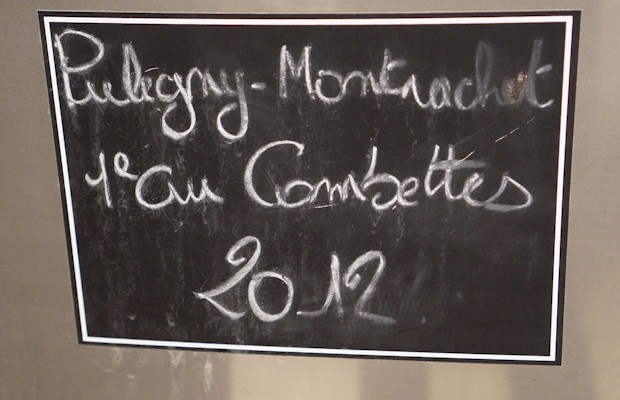 Puligny-Montrachet
1e cru Combettes
2012